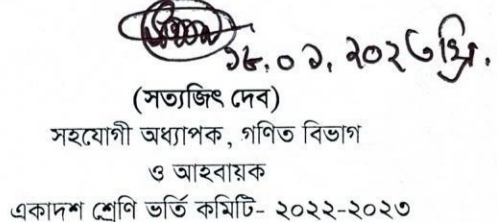 ১৮.০১.২০২৩ খ্রি.
(সত্যজিৎ দেব)
সহযোগী অধ্যাপক, গণিত বিভাগ
ও আহবায়ক
একাদশ শ্রেণি ভর্তি কমিটি- ২০২২-২০২৩